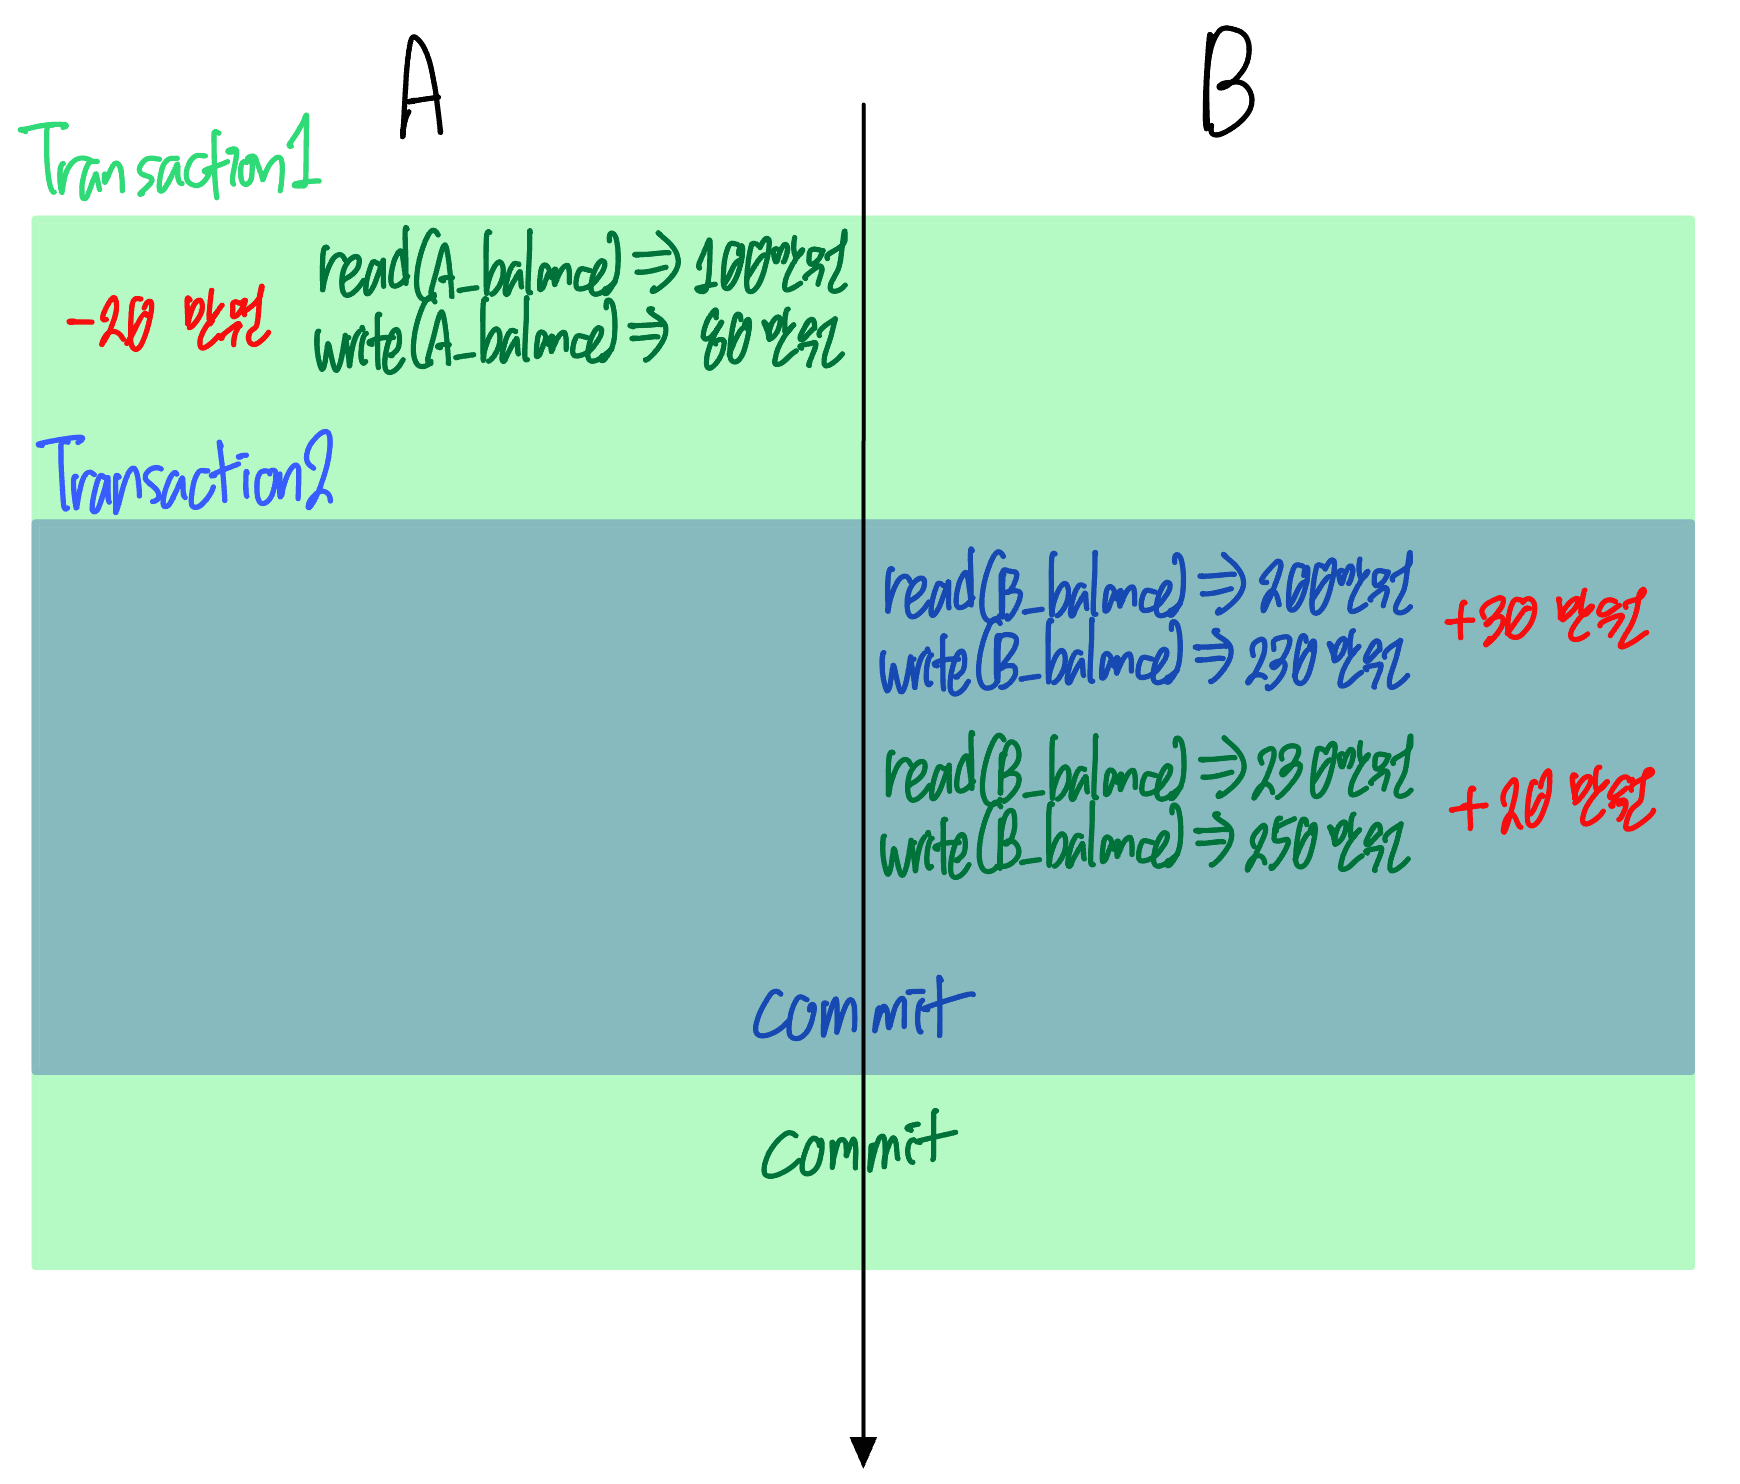 A
B
Transaction1
read(A_balance) ⇒ 100만원
-20 만원
write(A_balance) ⇒ 80 만원
Transaction2
read(B_balance) ⇒ 200만원
+30 만원
write(B_balance) ⇒ 230 만원
read(B_balance) ⇒ 230만원
+20 만원
write(B_balance) ⇒ 250 만원
commit
commit